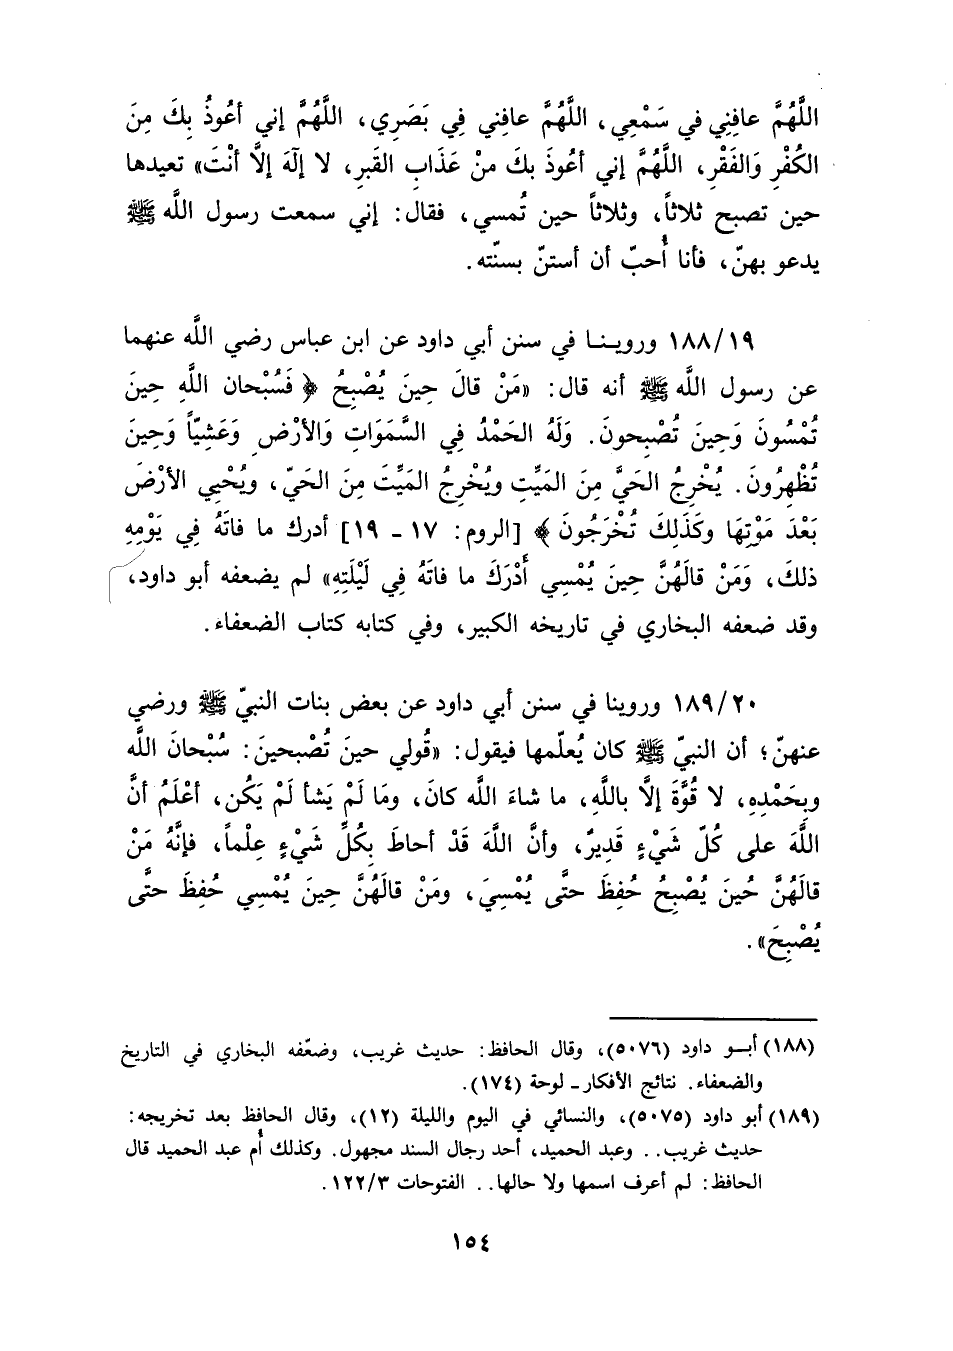 اللَّهُمَّ عافِنِي في سَمْعِي، اللَّهُمَّ عافِني فِي بَصَرِي، اللَّهُمَّ إني أعُوذُ بِكَ مِنَ
الكُفْرِ وَالفَقْرِ، اللَّهُمَّ إني أعُوذَ بكَ منْ عَذَابِ القَبرِ، لا إلَهَ إلَّا أنْتَ» تعيدها
حين تصبح ثلاثاً، وثلاثاً حين تُمسي، فقال: إني سمعت رسول اللَّه ﷺ
يدعو بهنّ، فأنا أُحبّ أن أستنّ بسنّته.
١٨٨/١٩ وروينا في سنن أبي داود عن ابن عباس رضي اللَّه عنهما
عن رسول اللَّه ﷺ أنه قال: «مَنْ قالَ حِينَ يُصْبِحُ ﴿فَسُبْحان اللَّهِ حِينَ
تُمْسُونَ وَحِينَ تُصْبِحونَ. وَلَهُ الحَمْدُ فِي السَّمَوَاتِ وَالأرْضِ وَعَشِيّاً وَحِينَ
تُظْهِرُونَ. يُخْرِجُ الحَيَّ مِنَ المَيِّتِ ويُخْرِجُ المَيِّتَ مِنَ الحَيّ، ويُحْيِي الأرْضَ
بَعْدَ مَوْتِهَا وكَذَلِكَ تُخْرَجُونَ﴾ [الروم: ١٧ ـ ١٩] أدرك ما فاتَهُ فِي يَوْمِهِ
ذلكَ، وَمَنْ قالَهُنَّ حِينَ يُمْسِي أَدْرَكَ ما فاتَهُ فِي لَيْلَتِهِ» لم يضعفه أبو داود،
وقد ضعفه البخاري في تاريخه الكبير، وفي كتابه كتاب الضعفاء.
١٨٩/٢٠ وروينا في سنن أبي داود عن بعض بنات النبيّ ﷺ ورضي
عنهنّ؛ أن النبيّ ﷺ كان يُعلّمها فيقول: «قُولي حينَ تُصْبحينَ: سُبْحانَ اللَّه
وبِحَمْدِهِ، لا قُوَّةَ إلَّا باللَّهِ، ما شاءَ اللَّه كانَ، ومَا لَمْ يَشأ لَمْ يَكُن، أعْلَمُ أنَّ
اللَّهَ على كُلّ شَيْءٍ قَدِيرٌ، وأنَّ اللَّهَ قَدْ أحاطَ بِكُلِّ شَيْءٍ عِلْماً، فإنَّهُ مَنْ
قالَهُنَّ حُينَ يُصْبِحُ حُفِظَ حتَّى يُمْسِيَ، ومَنْ قالَهُنَّ حِينَ يُمْسِي حُفِظَ حتَّى
يُصْبِحَ».
(١٨٨) أبو داود (٥٠٧٦)، وقال الحافظ: حديث غريب، وضعّفه البخاري في التاريخ
والضعفاء. نتائج الأفكار ـ لوحة (١٧٤).
(١٨٩) أبو داود (٥٠٧٥)، والنسائي في اليوم والليلة (١٢)، وقال الحافظ بعد تخريجه:
حديث غريب.. وعبد الحميد، أحد رجال السند مجهول. وكذلك أُم عبد الحميد قال
الحافظ: لم أعرف اسمها ولا حالها.. الفتوحات ١٢٢/٣.
١٥٤